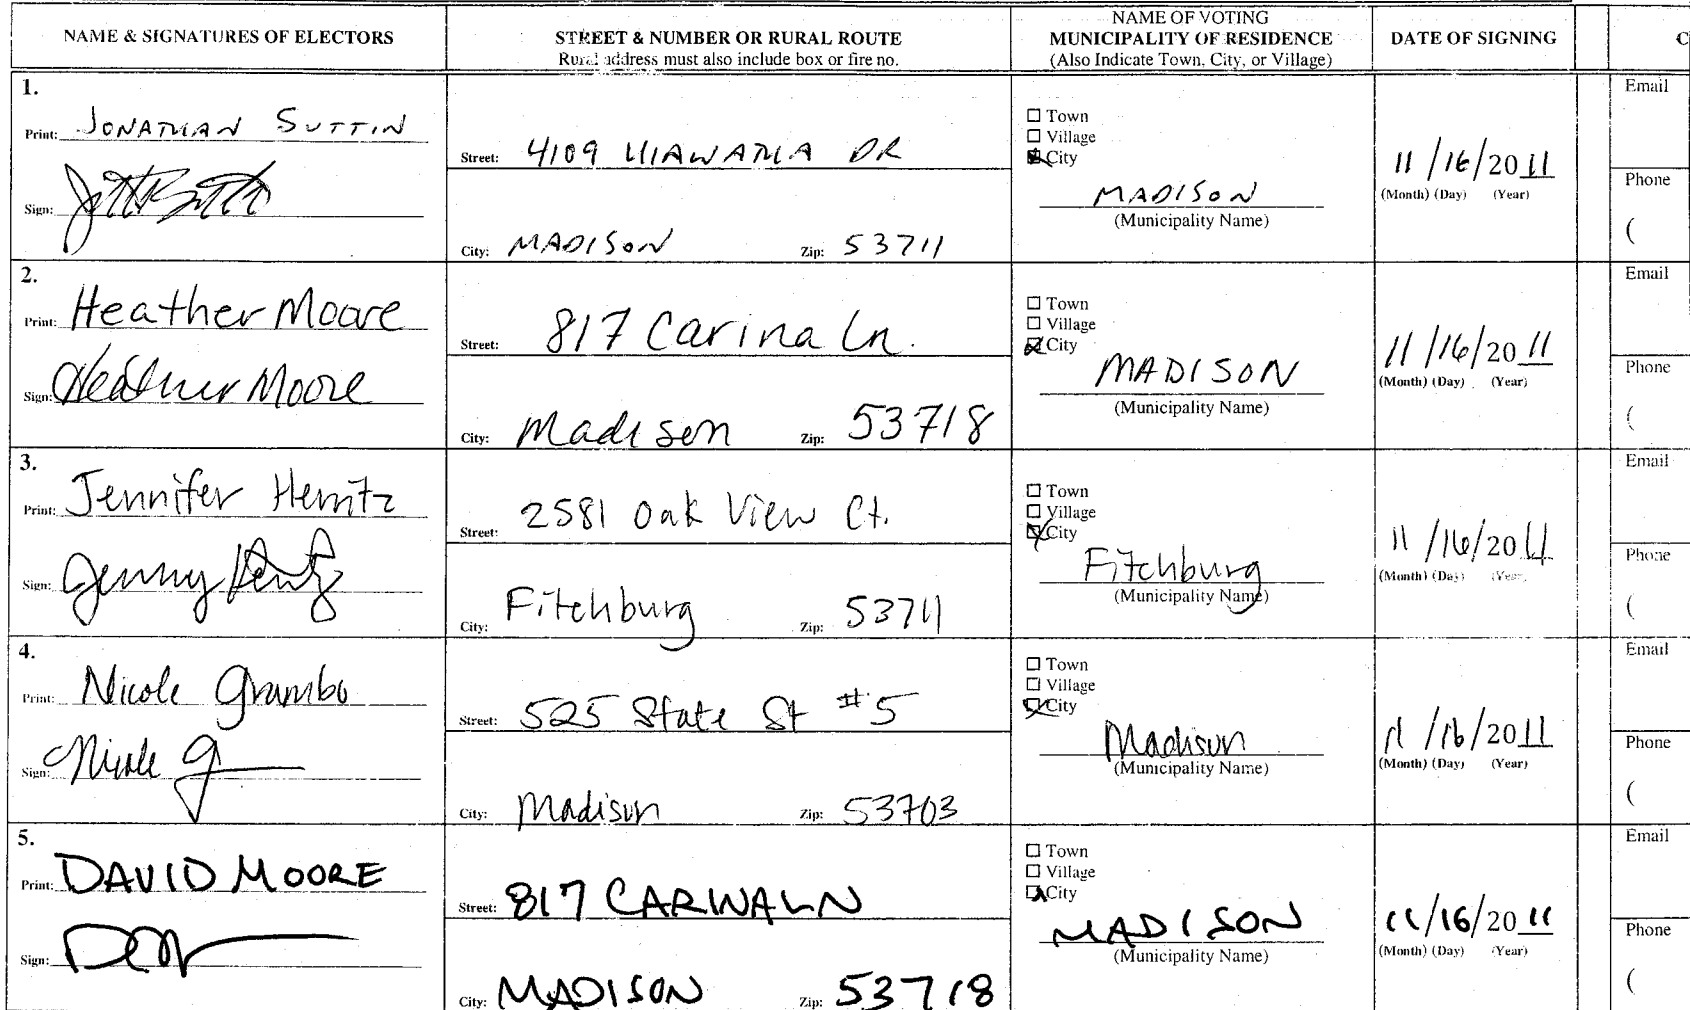 NAME & SIGNATURES OF ELECTORS
STREET & NUMBER OR RURAL ROUTE
Rural address must also include box or fire no.
NAME OF VOTING
MUNICIPALITY OF RESIDENCE
(Also Indicate Town, City, or Village)
DATE OF SIGNING
C
1.
Print: JONATHAN SUTTIN
Sign:
Street: 4109 HIAWATHA DR
City: MADISON Zip: 53711
Town
Village
City
MADISON
(Municipality Name)
11/16/2011
(Month) (Day) (Year)
Email
Phone
(
2.
Print: Heather Moore
Sign: Heather Moore
Street: 817 Carina Ln.
City: Madison Zip: 53718
Town
Village
City
MADISON
(Municipality Name)
11/16/2011
(Month) (Day) (Year)
Email
Phone
(
3.
Print: Jennifer Herritz
Sign: Jenny
Street: 2581 Oak View Ct.
City: Fitchburg Zip: 53711
Town
Village
City
Fitchburg
(Municipality Name)
11/16/2011
(Month) (Day) (Year)
Email
Phone
(
4.
Print: Nicole Grambo
Sign: Nicole G
Street: 525 State St #5
City: Madison Zip: 53703
Town
Village
City
Madison
(Municipality Name)
11/16/2011
(Month) (Day) (Year)
Email
Phone
(
5.
Print: DAVID MOORE
Sign:
Street: 817 CARINA LN
City: MADISON Zip: 53718
Town
Village
City
MADISON
(Municipality Name)
11/16/2011
(Month) (Day) (Year)
Email
Phone
(